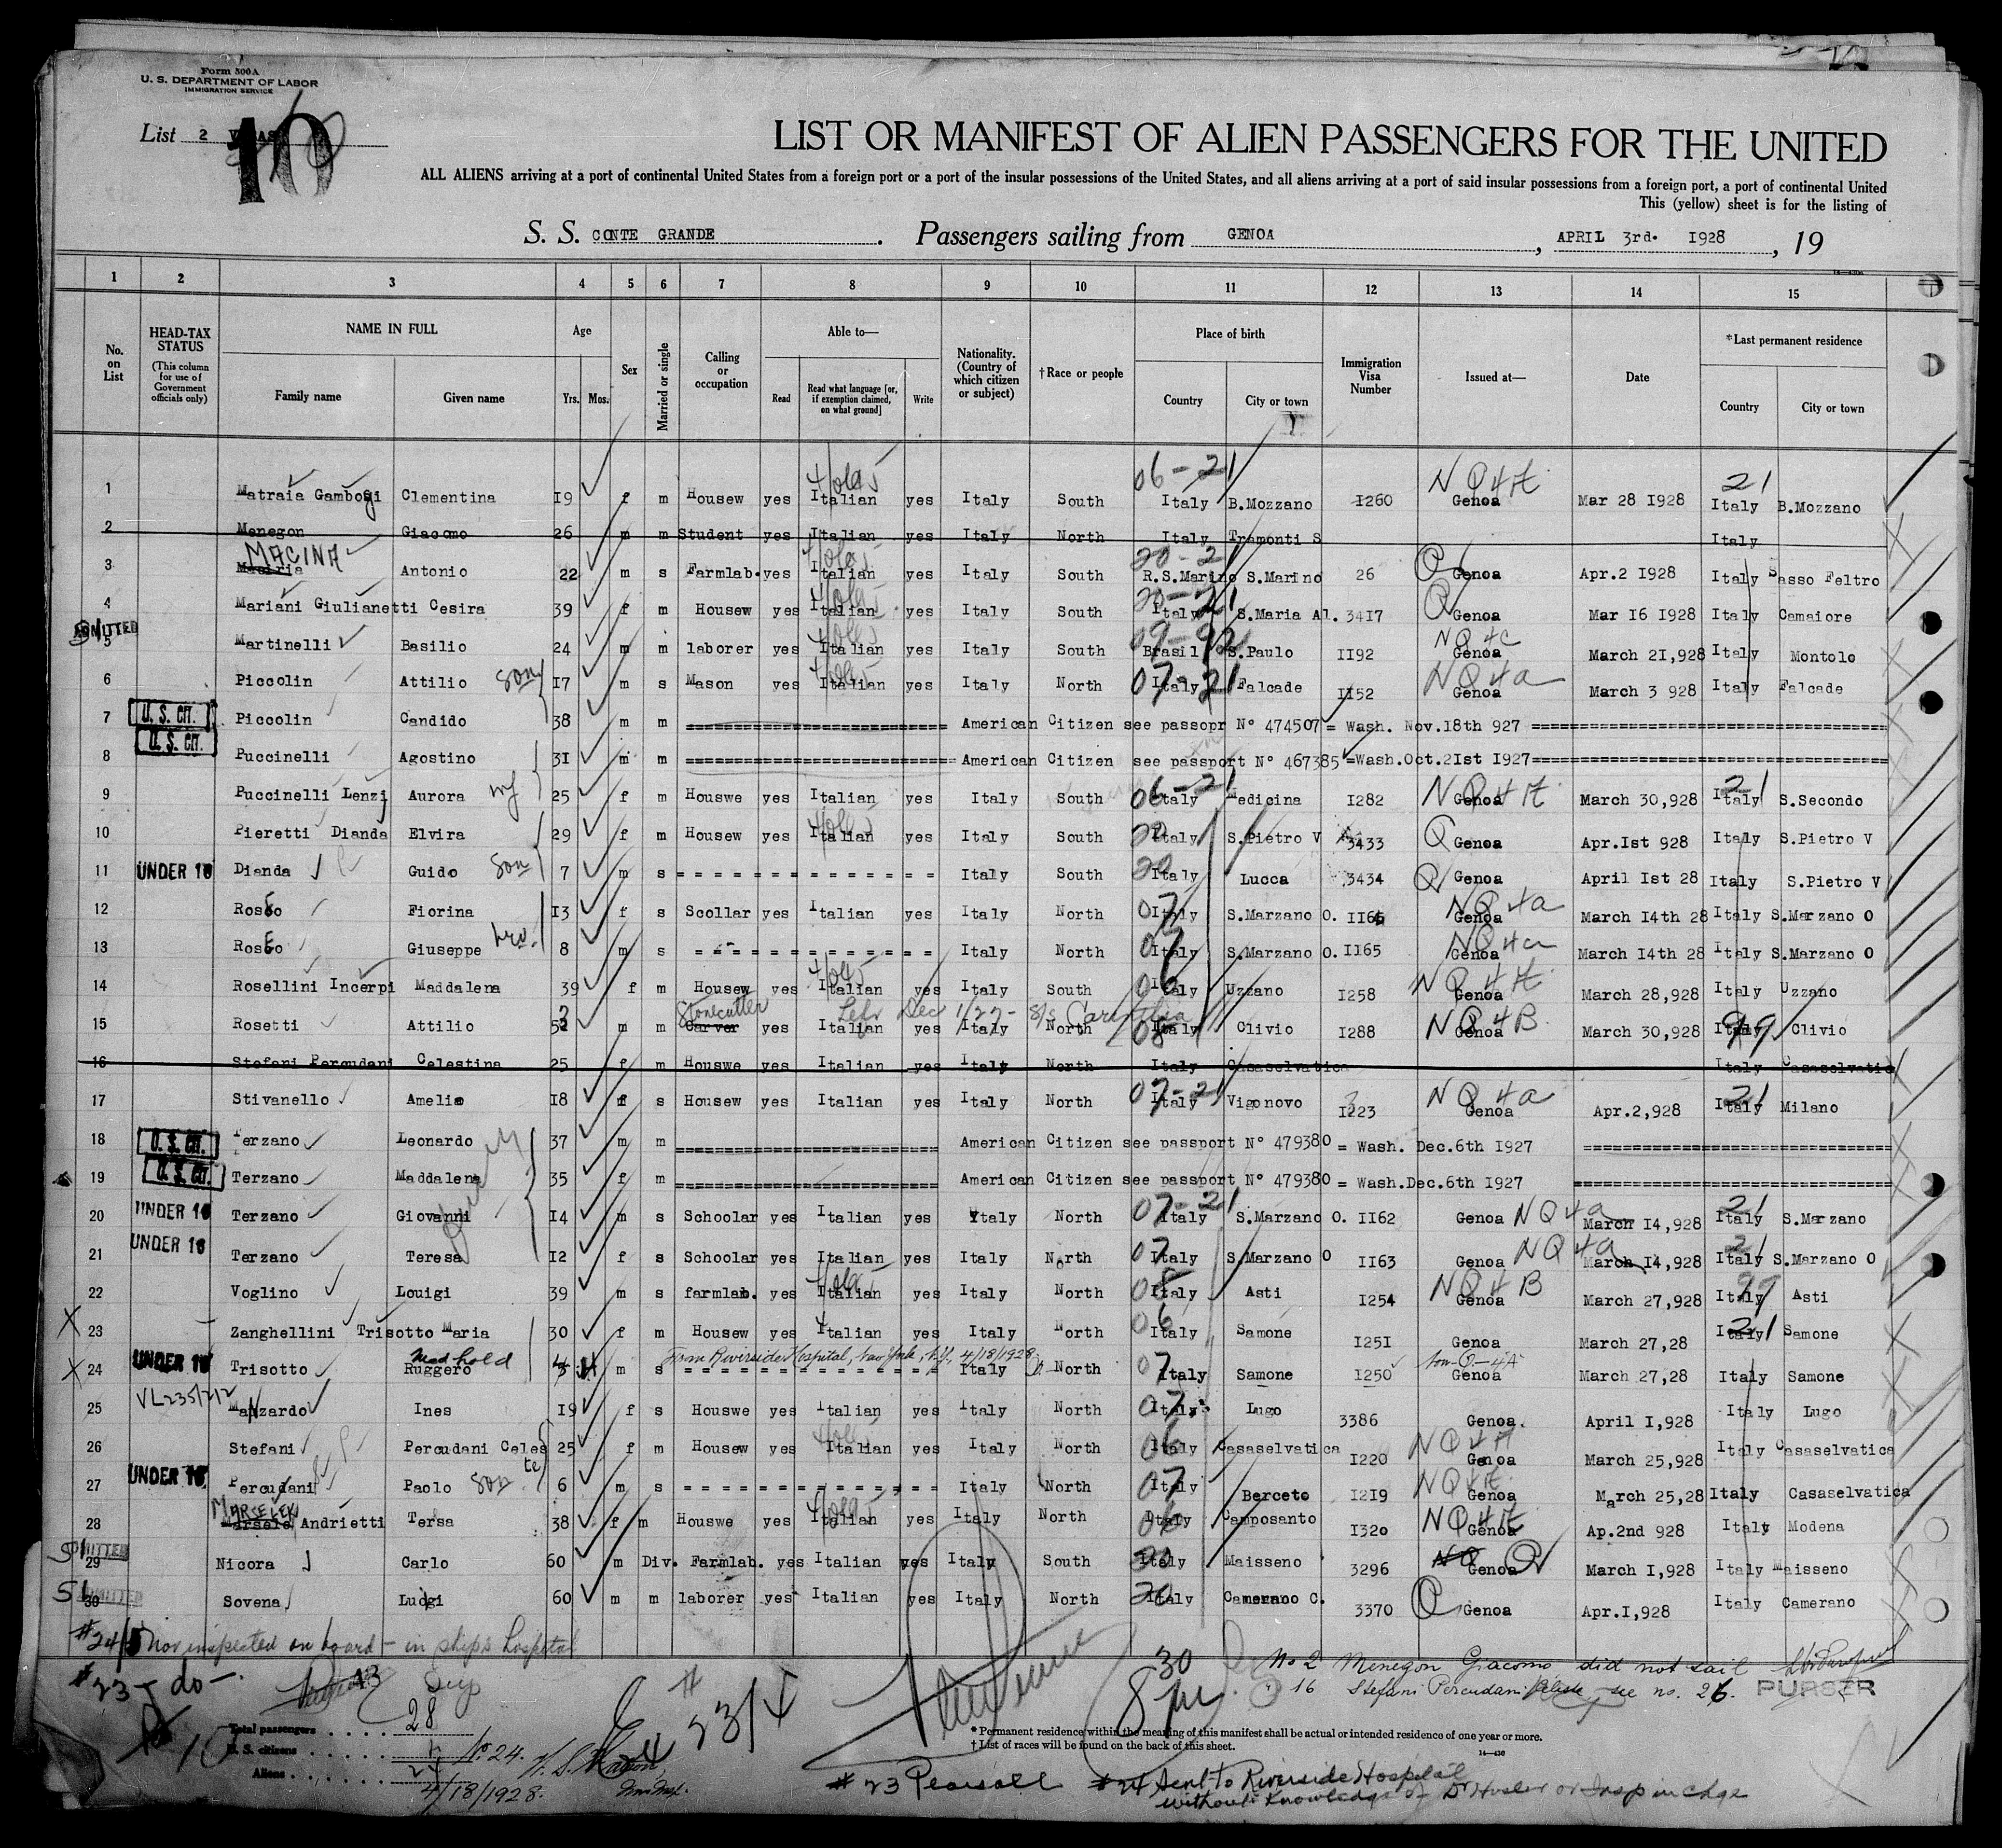 Form 500A
U. S. DEPARTMENT OF LABOR
IMMIGRATION SERVICE
List 2
10
LIST OR MANIFEST OF ALIEN PASSENGERS FOR THE UNITED
ALL ALIENS arriving at a port of continental United States from a foreign port or a port of the insular possessions of the United States, and all aliens arriving at a port of said insular possessions from a foreign port, a port of continental United
This (yellow) sheet is for the listing of
S. S. CONTE GRANDE. Passengers sailing from GENOA, APRIL 3rd. 1928, 19
1 2 3 4 5 6 7 8 9 10 11 12 13 14 15
No. on List
HEAD-TAX STATUS (This column for use of Government officials only)
NAME IN FULL Family name Given name
Age Yrs. Mos.
Sex
Married or single
Calling or occupation
Able to— Read Read what language [or, if exemption claimed, on what ground] Write
Nationality. (Country of which citizen or subject)
†Race or people
Place of birth Country City or town
Immigration Visa Number
Issued at—
Date
*Last permanent residence Country City or town
1 Matraia Gambogi Clementina 19 f m Housew yes Italian yes Italy South 06-21 Italy B.Mozzano 1260 NQ4A Genoa Mar 28 1928 21 Italy B.Mozzano
2 Menegon Giacomo 26 m m Student yes Italian yes Italy North Italy Tramonti S Italy
3 MACINA Antonio 22 m s Farmlab. yes Italian yes Italy South 20-21 R.S.Marino S.Marino 26 Q Genoa Apr.2 1928 Italy Sasso Feltro
4 Mariani Giulianetti Cesira 39 f m Housew yes Italian yes Italy South 20-21 Italy S.Maria Al. 3417 Q Genoa Mar 16 1928 Italy Camaiore
ADMITTED
5 Martinelli Basilio 24 m m laborer yes Italian yes Italy South 09-92 Brasil S.Paulo 1192 NQ4c Genoa March 21,928 Italy Montolo
6 Piccolin Attilio son 17 m s Mason yes Italian yes Italy North 07-21 Italy Falcade 1152 NQ4a Genoa March 3 928 Italy Falcade
7 U. S. CIT. Piccolin Candido 38 m m American Citizen see passopr N° 474507 = Wash. Nov.18th 927
8 U. S. CIT. Puccinelli Agostino 31 m m American Citizen see passport N° 467385 =Wash.Oct.21st 1927
9 Puccinelli Lenzi Aurora wf 25 f m Houswe yes Italian yes Italy South 06-21 Italy Medicina 1282 NQ4A Genoa March 30,928 21 Italy S.Secondo
10 Pieretti Dianda Elvira 29 f m Housew yes Italian yes Italy South 20 Italy S.Pietro V 3433 Q Genoa Apr.Ist 928 Italy S.Pietro V
11 UNDER 16 Dianda Guido son 7 m s Italy South 20 Italy Lucca 3434 Q Genoa April Ist 28 Italy S.Pietro V
12 Roseo Fiorina 13 f s Scollar yes Italian yes Italy North 07 Italy S.Marzano O. 1166 NQ4a Genoa March 14th 28 Italy S.Marzano O
13 Roseo Giuseppe bro. 8 m s Italy North 07 Italy S.Marzano O. 1165 NQ4a Genoa March 14th 28 Italy S.Marzano O
14 Rosellini Incerpi Maddalena 39 f m Housew yes Italian yes Italy South 06 Italy Uzzano 1258 NQ4A Genoa March 28,928 Italy Uzzano
15 Rosetti Attilio 52 m m Carver Stonecutter yes Italian yes Italy North 08 Italy Clivio 1288 NQ4B Genoa March 30,928 99 Italy Clivio
16 Stefani Percudani Celestina 25 f m Houswe yes Italian yes Italy North Italy Casaselvatica Italy Casaselvatic
17 Stivanello Amelia 18 f s Housew yes Italian yes Italy North 07-21 Italy Vigonovo 1223 NQ4a Genoa Apr.2,928 21 Italy Milano
18 U. S. CIT. Terzano Leonardo 37 m m American Citizen see passport N° 479380 = Wash. Dec.6th 1927
19 U. S. CIT. Terzano Maddalena 35 f m American Citizen see passport N° 479380 = Wash.Dec.6th 1927
20 UNDER 16 Terzano Giovanni 14 m s Schoolar yes Italian yes Italy North 07-21 Italy S.Marzano O. 1162 Genoa NQ4a March 14,928 21 Italy S.Marzano
21 UNDER 16 Terzano Teresa 12 f s Schoolar yes Italian yes Italy North 07 Italy S.Marzano O 1163 Genoa NQ4a March 14,928 21 Italy S.Marzano O
22 Voglino Louigi 39 m s farmlab. yes Italian yes Italy North 08 Italy Asti 1254 NQ4B Genoa March 27,928 99 Italy Asti
23 Zanghellini Trisotto Maria 30 f m Housew yes Italian yes Italy North 06 Italy Samone 1251 Genoa March 27,28 21 Italy Samone
From Riverside Hospital, New York, N.Y., 4/18/1928
24 UNDER 16 Trisotto Ruggero Med hold m s Italy North 07 Italy Samone 1250 Non-Q-4A Genoa March 27,28 Italy Samone
25 VL235/212 Manzardo Ines 19 f s Houswe yes Italian yes Italy North 07 Italy Lugo 3386 Genoa. April 1,928 Italy Lugo
26 Stefani Percudani Celes te 25 f m Housew yes Italian yes Italy North 06 Italy Casaselvatica 1220 NQ4A Genoa March 25,928 Italy Casaselvatica
27 UNDER 16 Percudani Paolo son 6 m s Italy North 07 Italy Berceto 1219 NQ4A Genoa March 25,28 Italy Casaselvatica
28 Andrietti Tersa 38 f m Houswe yes Italian yes Italy North 06 Italy Camposanto 1320 NQ4A Genoa Ap.2nd 928 Italy Modena
29 ADMITTED Nicora Carlo 60 m Div. Farmlab. yes Italian yes Italy South 20 Italy Maisseno 3296 NQ Genoa Q March 1,928 Italy Maisseno
30 ADMITTED Sovena Luigi 60 m m laborer yes Italian yes Italy North 20 Italy Camerano C. 3370 Q Genoa Apr.1,928 Italy Camerano
#24/5 Not inspected on board - in ship's hospital
#23 - do -
No 2 Menegon Giacomo did not sail
16 Stefani Percudani see no. 26. PURSER
8 30 PM
Total passengers 28
U. S. citizens
Aliens
No 24.
4/18/1928.
# 23/4
* Permanent residence within the meaning of this manifest shall be actual or intended residence of one year or more.
† List of races will be found on the back of this sheet.
# 23 Pearsall #24 Sent to Riverside Hospital
without knowledge of Dr Hosler or Insp in Chge